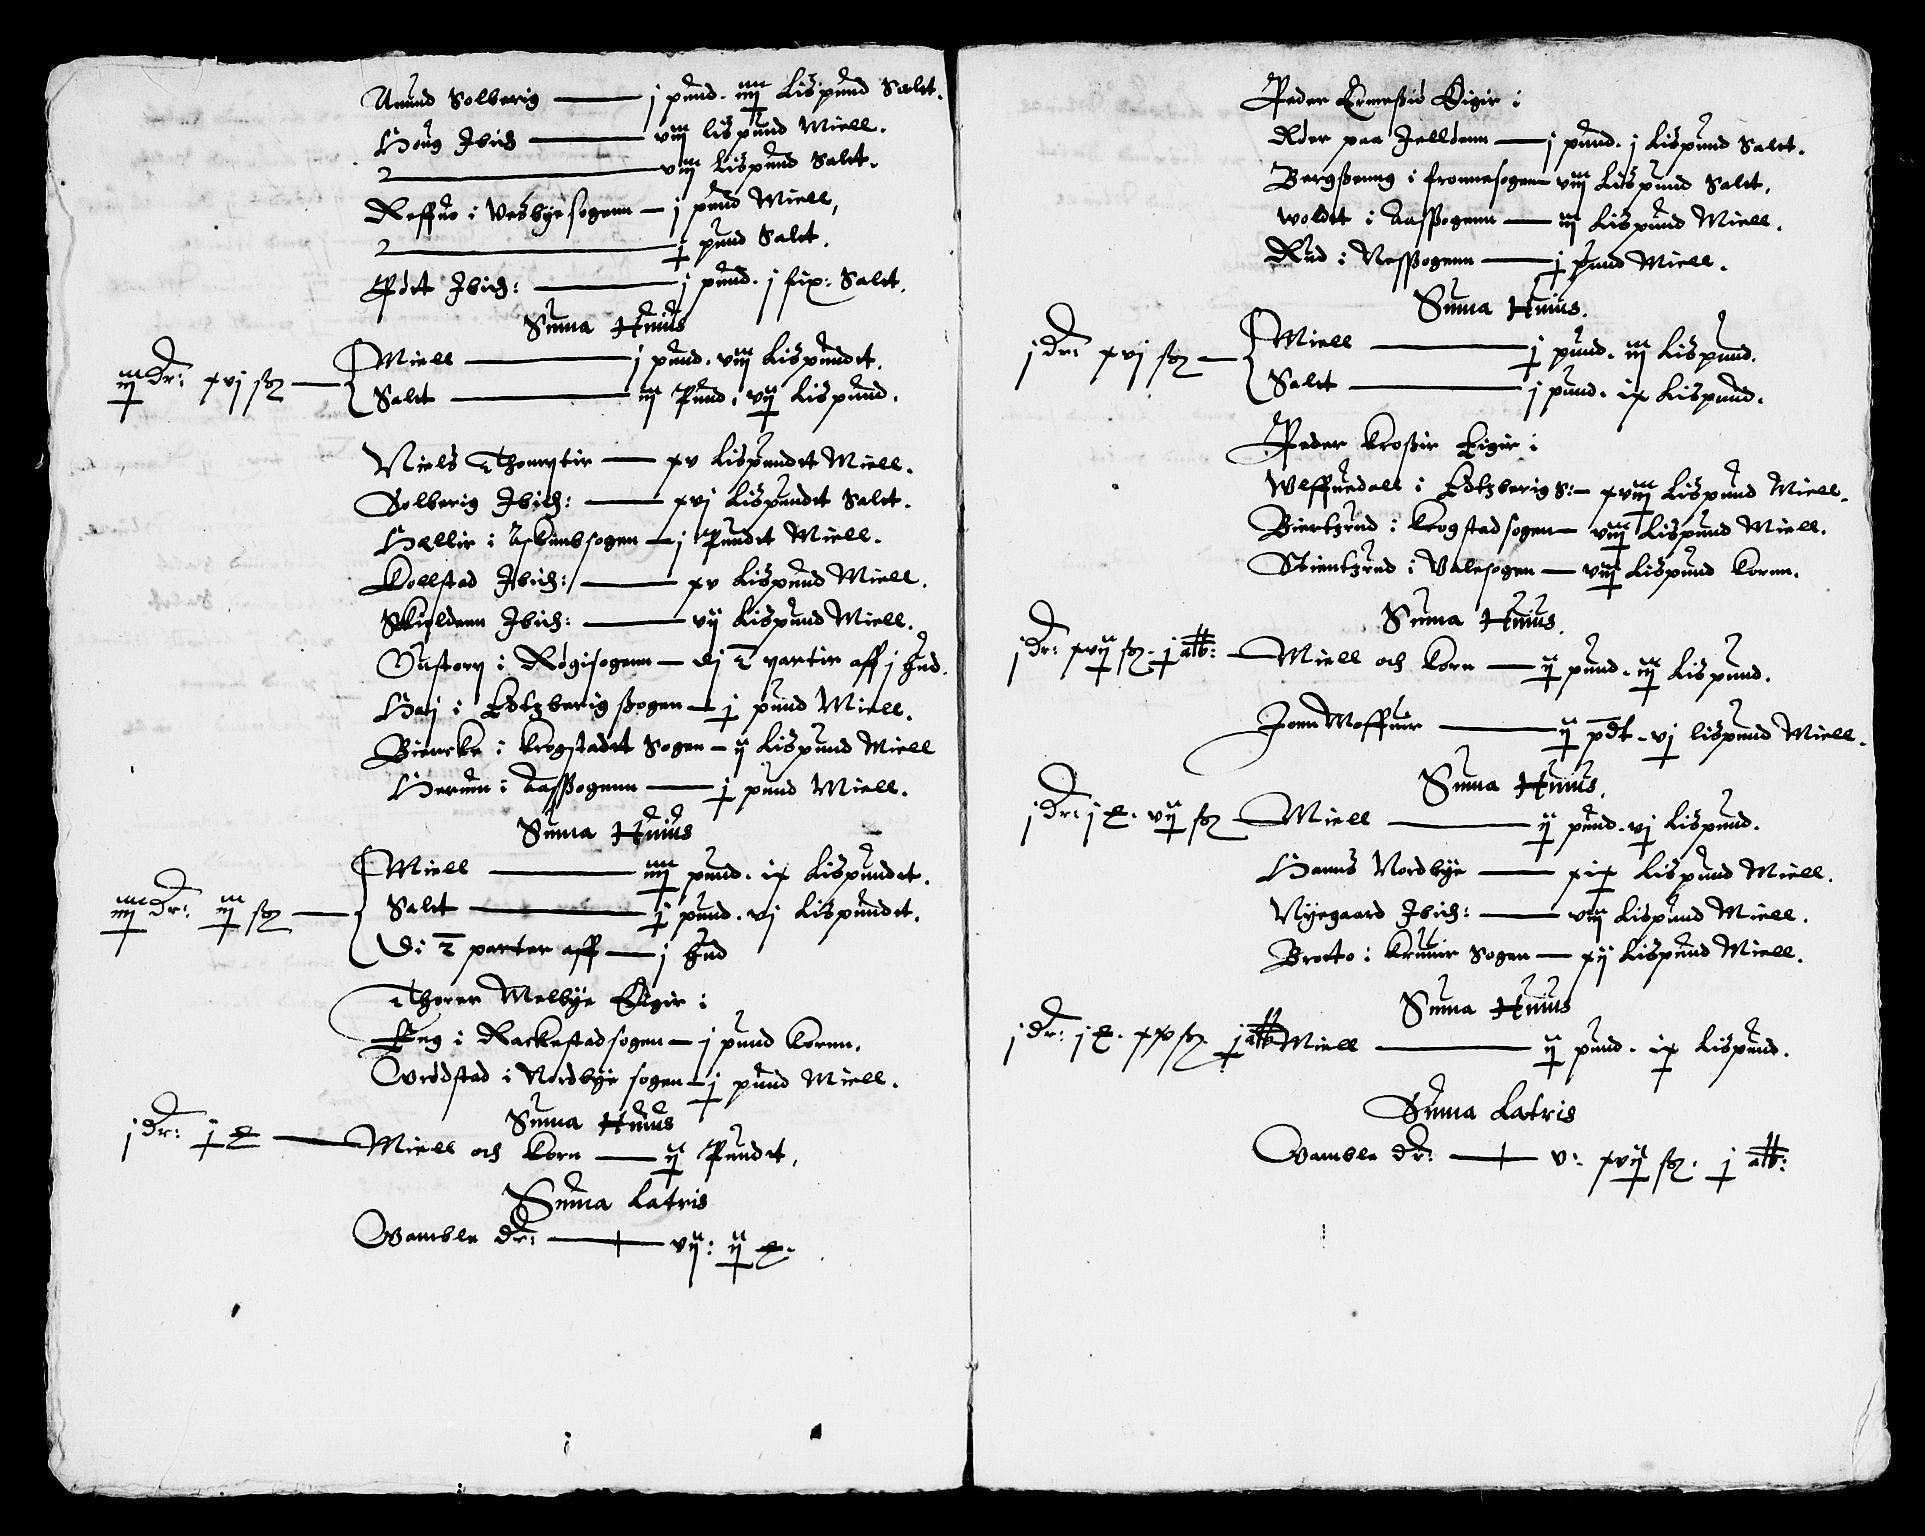 Amund Solberig — j pund. iiij Lispund Salt.
Houg Ibid — viij lispund Miell.
2 — viij Lispund Salt.
Reffue i Vesbye sogenn — j pund Miell,
2 — j pund Salt.
Ibid: — j pund. j fix: Salt.
Suma Huius
iij Dr: xvj sz — Miell — j pund. viij Lispundt.
Salt — iij Pund. vij Lispund.
Niels Thomter — xv Lispundt Miell.
Solberig Ibid: — xvj Lispundt Salt.
Hellir i Askimbsogen — j Pundt Miell.
Kollstad Ibid: — xv Lispund Miell.
Skioldenn Ibid: — vij Lispund Miell.
i Røgisogenn — di 2 partir aff j hud.
Haij i Edtzberig ssogen — j pund Miell.
Biercke i Krogstadt Sogen — ij Lispund Miell
Herum i Aassogenn — j pund Miell.
Suma Huius
iiij Dr: iij sz — Miell — iiij pund. ix Lispundt.
Salt — j pund. vj Lispundt.
Di 2 parter aff — j hud
Thorer Melbye Eigir i
Eeg i Rackestad sogen — j pund Kornn.
Ourødstad i Nordbye sogen — j pund Miell.
Suma Huius
j Dr: j — Miell och Korn — ij Pundt,
Suma Latris
Gamble dr: — vij: ij
Peder Eigir i
Røer paa Jelløenn — j pund. j Lispund Salt.
i fronnesogen — viij Lispund Salt.
woldt i Aassogenn — iij Lispund Miell.
Rud i Nessogenn — j pund Miell.
Suma Huius.
j Dr: xvj sz — Miell — j pund. iij Lispund.
Salt — j pund. ix Lispund.
Peder Krossir Eigir i
i Edtzberig S: — xviij Lispund Miell.
i Krogstadsogen — viij Lispund Miell.
i Valesogen — viij Lispund Kornn.
Suma Huius.
j Dr: xvij sz. j alb: — Miell och Korn — ij pund. iij Lispund.
Joen — ij pdt. vj lispund Miell.
Suma Huius.
j Dr: j vij sz — Miell — ij pund. vj Lispund.
Hanns Nordbye — xix Lispund Miell.
Nyegaard Ibid: — viij Lispund Miell.
Brotto i Sogen — xij Lispund Miell.
Suma Huius
j Dr: j xx sz. j alb — Miell — ij pund. ix Lispund.
Suma Latris
Gamble dr: — v: xvij sz. j alb: